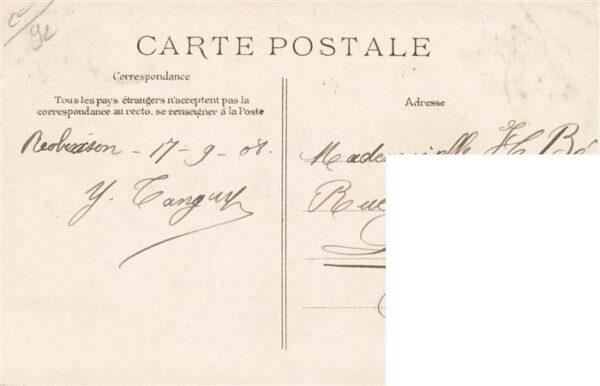 CARTE POSTALE
Correspondance
Tous les pays étrangers n'acceptent pas la
correspondance au recto, se renseigner à la Poste
Robinson - 17-9-08.
Y. Tanguy
Adresse
Mademoiselle H. Bé
Rue